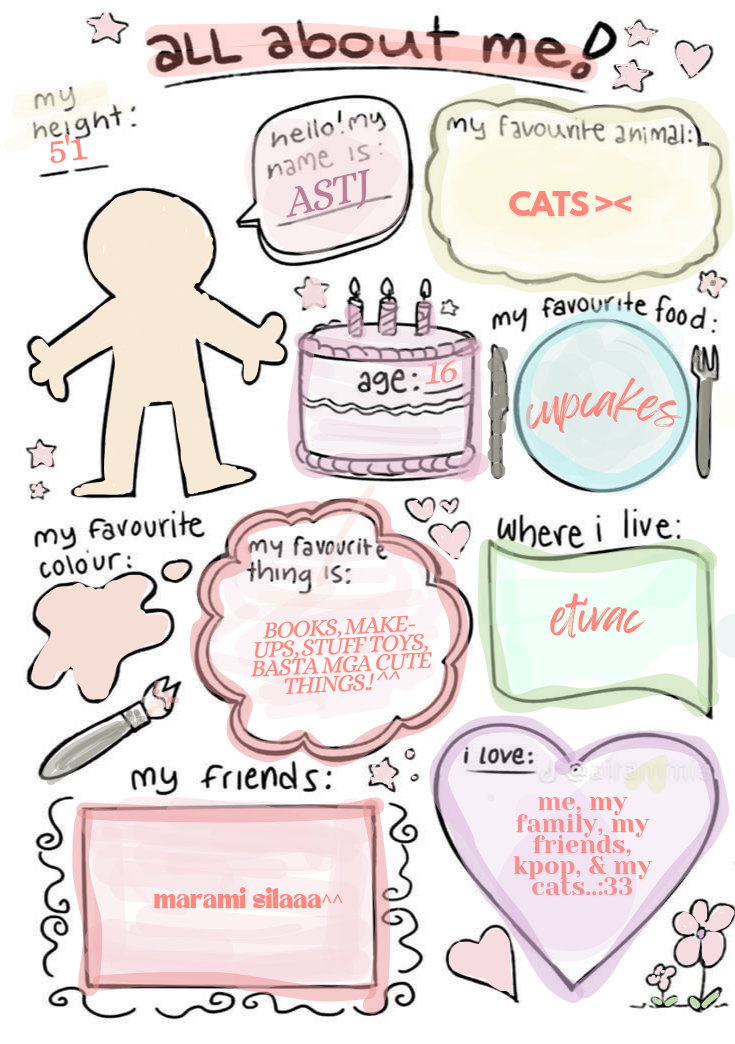 all about me!
my
height:
5'1
hello! my
name is:
ASTJ
my favourite animal:
CATS ><
age: 16
my favourite food:
cupcakes
my favourite
colour:
my favourite
thing is:
BOOKS, MAKE-
UPS, STUFF TOYS,
BASTA MGA CUTE
THINGS.! ^^
where i live:
etivac
my friends:
marami silaaa^^
i love:
me, my
family, my
friends,
kpop, & my
cats...:33